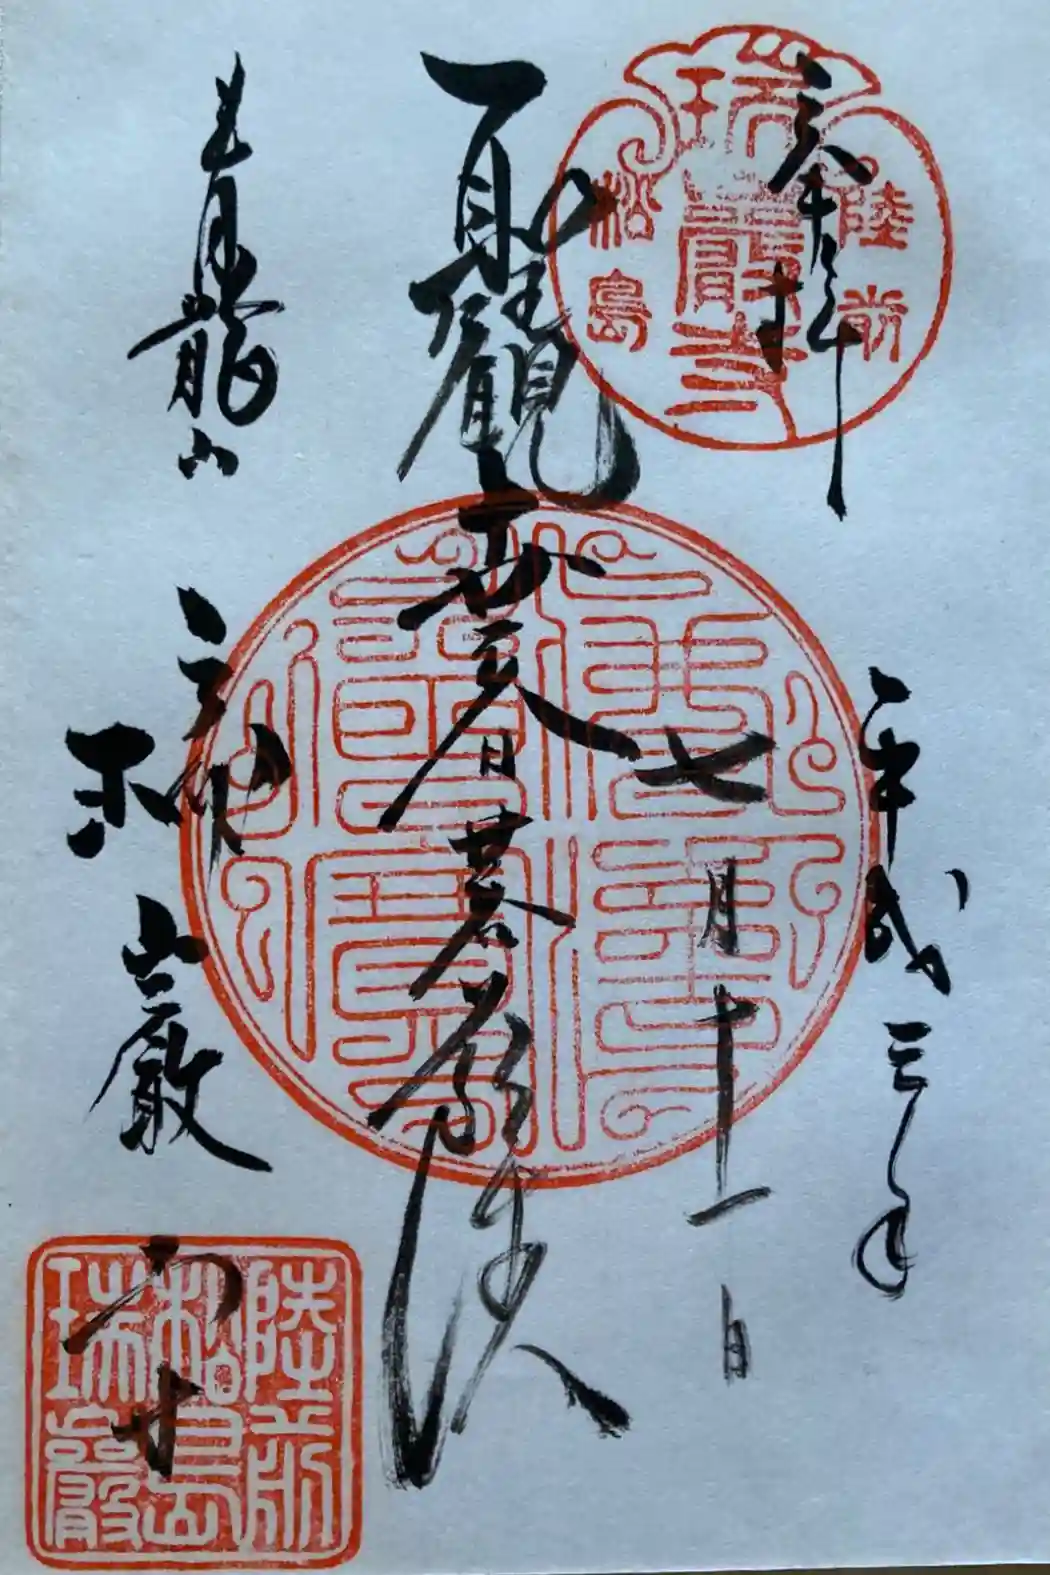 奉拝
陸前
瑞巌寺
松島
平成三年
七月十一日
聖観世音菩薩
佛法僧寶
青龍山
瑞巌寺
陸前
松島
瑞巌